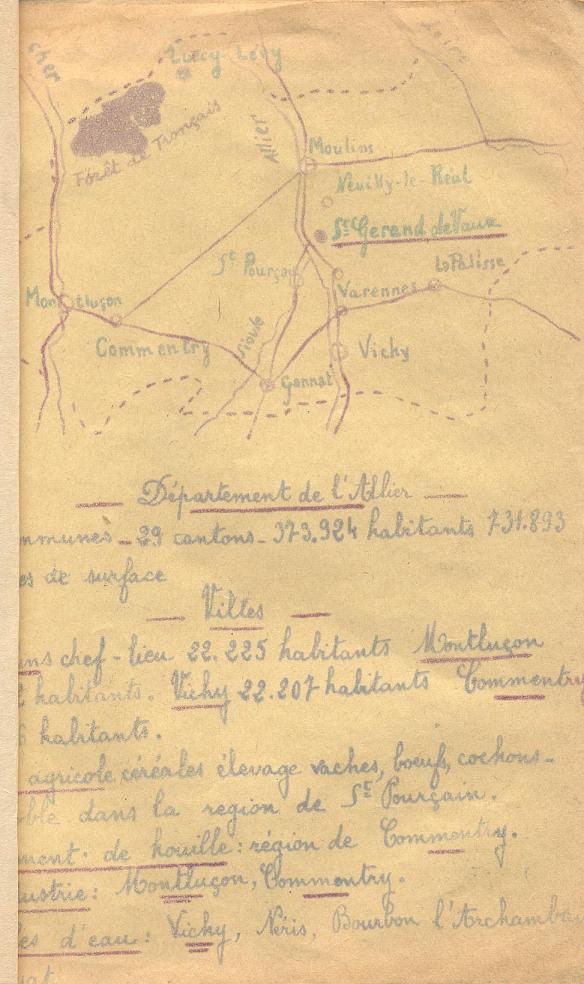 Cher
Lurcy Levy
Loire
Forêt de Tronçais
Allier
Moulins
Neuilly-le-Réal
St Gerend de Vaux
St Pourçain
La Palisse
Montluçon
Varennes
Commentry
Sioule
Vichy
Gannat
Département de l'Allier
mmunes - 29 cantons - 373.924 habitants 731.893
es de surface
Villes
ns chef-lieu 22.225 habitants Montluçon
2 habitants. Vichy 22.207 habitants Commentry
6 habitants.
agricole céréales élevage vaches, boeufs, cochons-
ble dans la region de St Pourçain.
ment. de houille: région de Commentry.
ustrie: Montluçon, Commentry.
es d'eau: Vichy, Néris, Bourbon l'Archambau